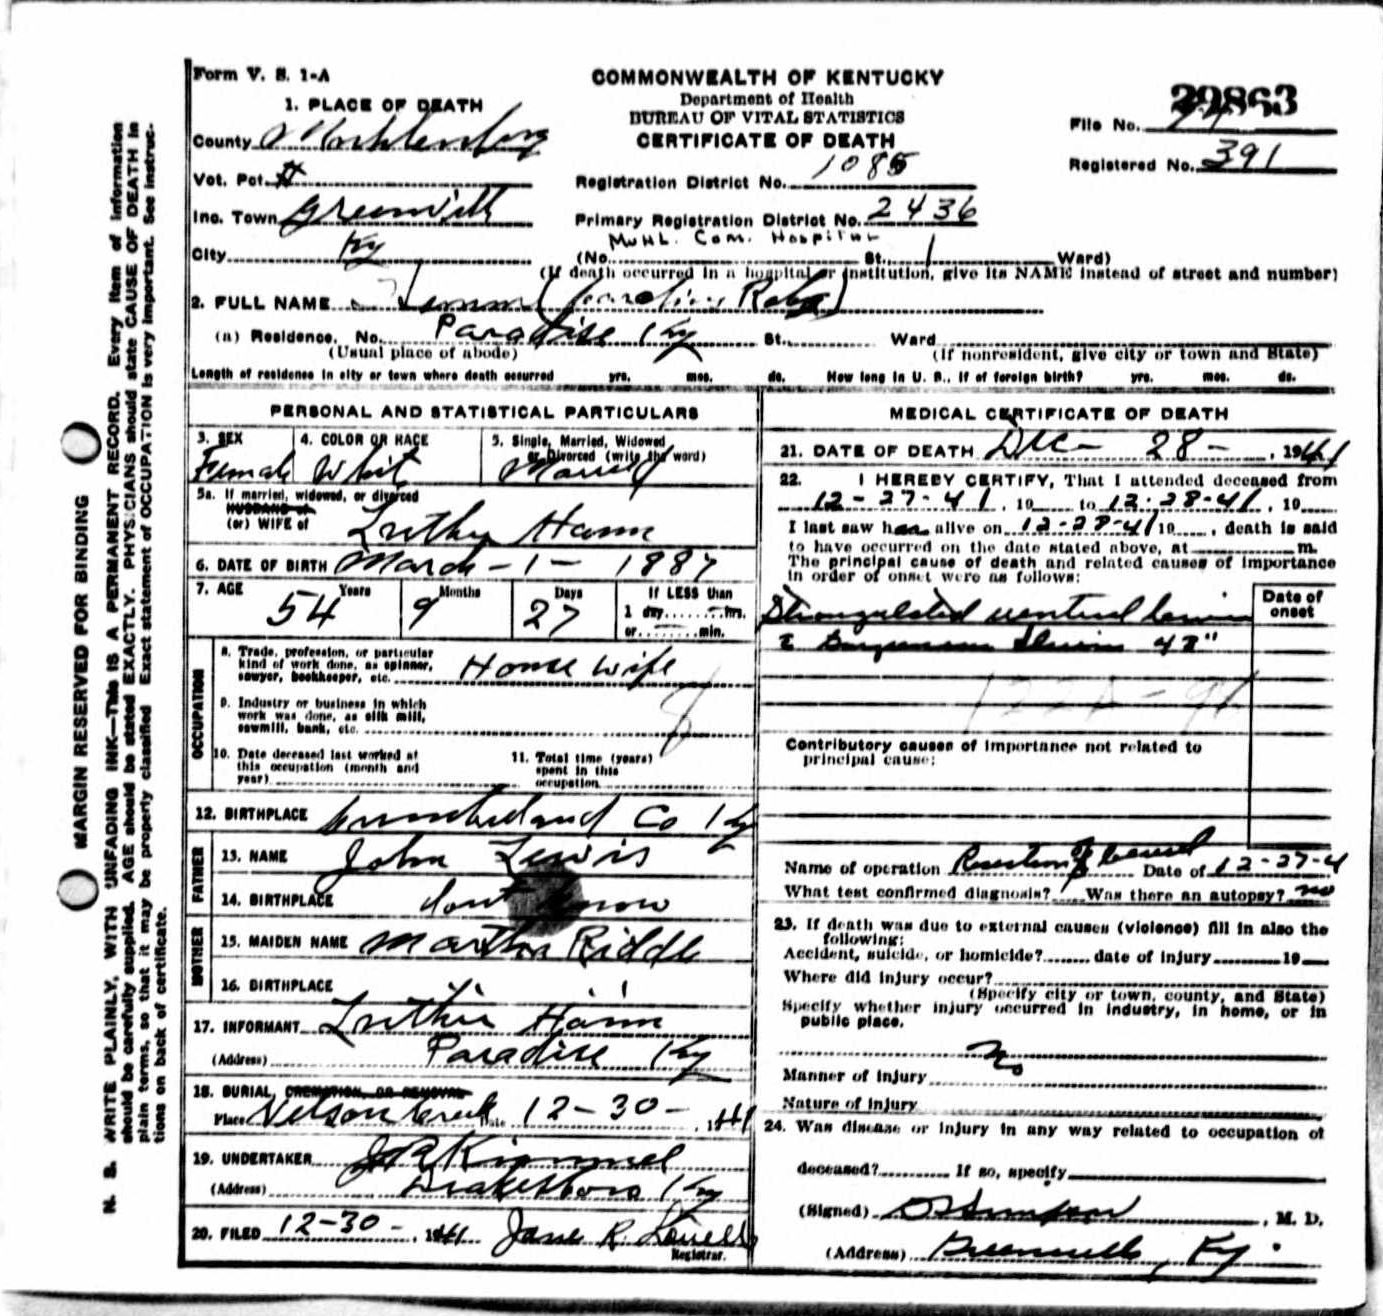 Form V. S. 1-A
COMMONWEALTH OF KENTUCKY
Department of Health
BUREAU OF VITAL STATISTICS
CERTIFICATE OF DEATH
29863
File No.
Registered No. 391
1. PLACE OF DEATH
County Muhlenberg
Vot. Pct. #
Inc. Town Greenville
City Ky
Registration District No. 1085
Primary Registration District No. 2436
Muhl. Com. Hospital
(No. St., 1 Ward)
(If death occurred in a hospital or institution, give its NAME instead of street and number)
2. FULL NAME
(a) Residence. No. Paradise Ky St., Ward
(Usual place of abode)
(If nonresident, give city or town and State)
Length of residence in city or town where death occurred yrs. mos. ds. How long in U. S., if of foreign birth? yrs. mos. ds.
PERSONAL AND STATISTICAL PARTICULARS
3. SEX
Female
4. COLOR OR RACE
Whit
5. Single, Married, Widowed
or Divorced (write the word)
Married
5a. If married, widowed, or divorced
HUSBAND of
(or) WIFE of
Luther Hann
6. DATE OF BIRTH March - 1 - 1887
7. AGE Years Months Days If LESS than
54 9 27 1 day, hrs.
or min.
OCCUPATION
8. Trade, profession, or particular
kind of work done, as spinner,
sawyer, bookkeeper, etc. House wife
9. Industry or business in which
work was done, as silk mill,
sawmill, bank, etc.
10. Date deceased last worked at
this occupation (month and
year)
11. Total time (years)
spent in this
occupation
12. BIRTHPLACE Cumberland Co Ky
FATHER
13. NAME John Lewis
14. BIRTHPLACE dont know
MOTHER
15. MAIDEN NAME Martha Riddle
16. BIRTHPLACE " " "
17. INFORMANT Luther Hann
(Address) Paradise Ky
18. BURIAL, CREMATION, OR REMOVAL
Place Nelson Creek Date 12-30-, 1941
19. UNDERTAKER J R Kimmel
(Address) Drakesboro Ky
20. FILED 12-30-, 1941 Jane R.
Registrar.
MEDICAL CERTIFICATE OF DEATH
21. DATE OF DEATH Dec - 28 - , 1941
22. I HEREBY CERTIFY, That I attended deceased from
12-27-41, 19 to 12-28-41, 19
I last saw her alive on 12-28-41 19, death is said
to have occurred on the date stated above, at m.
The principal cause of death and related causes of importance
in order of onset were as follows:
Date of
onset
Strangulated ventral hernia
122A-
Contributory causes of importance not related to
principal cause:
Name of operation Resection of bowel Date of 12-27-4
What test confirmed diagnosis? Was there an autopsy? no
23. If death was due to external causes (violence) fill in also the
following:
Accident, suicide, or homicide? date of injury 19
Where did injury occur?
(Specify city or town, county, and State)
Specify whether injury occurred in industry, in home, or in
public place.
no
Manner of injury
Nature of injury
24. Was disease or injury in any way related to occupation of
deceased? If so, specify
(Signed) , M. D.
(Address) Greenville, Ky.
MARGIN RESERVED FOR BINDING
N. B. WRITE PLAINLY, WITH UNFADING INK—THIS IS A PERMANENT RECORD. Every item of information
should be carefully supplied. AGE should be stated EXACTLY. PHYSICIANS should state CAUSE OF DEATH in
plain terms, so that it may be properly classified. Exact statement of OCCUPATION is very important. See instruc-
tions on back of certificate.